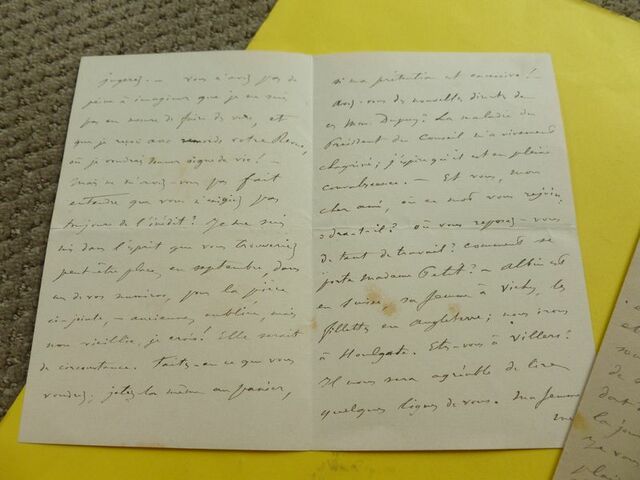 jugerez. — Vous n'avez pas de
peine à imaginer que je ne suis
pas en mesure de faire des vers, et
que je reçois avec remords votre Revue,
où je voudrais donner signe de vie! —
Mais ne m'avez-vous pas fait
entendre que vous n'exigiez pas
toujours de l'inédit? Je me suis
mis dans l'esprit que vous trouveriez
peut-être place, en septembre, dans
un de vos numéros, pour la pièce
ci-jointe, — ancienne, oubliée, mais
non vieillie, je crois! Elle serait
de circonstance. Faites-en ce que vous
voudrez; jetez-la même au panier,
si ma prétention est excessive! —
Avez-vous des nouvelles directes de
Mr. Dupuy? La maladie du
Président du Conseil m'a vivement
chagriné; j'espère qu'il est en pleine
convalescence. — Et vous, mon
cher ami, où ce mot vous rejoin-
dra-t-il? Où vous reposez-vous
de tant de travail? Comment se
porte Madame Petit? — Albin est
en Suisse, sa femme à Vichy, les
fillettes en Angleterre; nous irons
à Houlgate. Etes-vous à Villers?
Il nous sera agréable de lire
quelques lignes de vous. Ma femme
la jour
Je vou